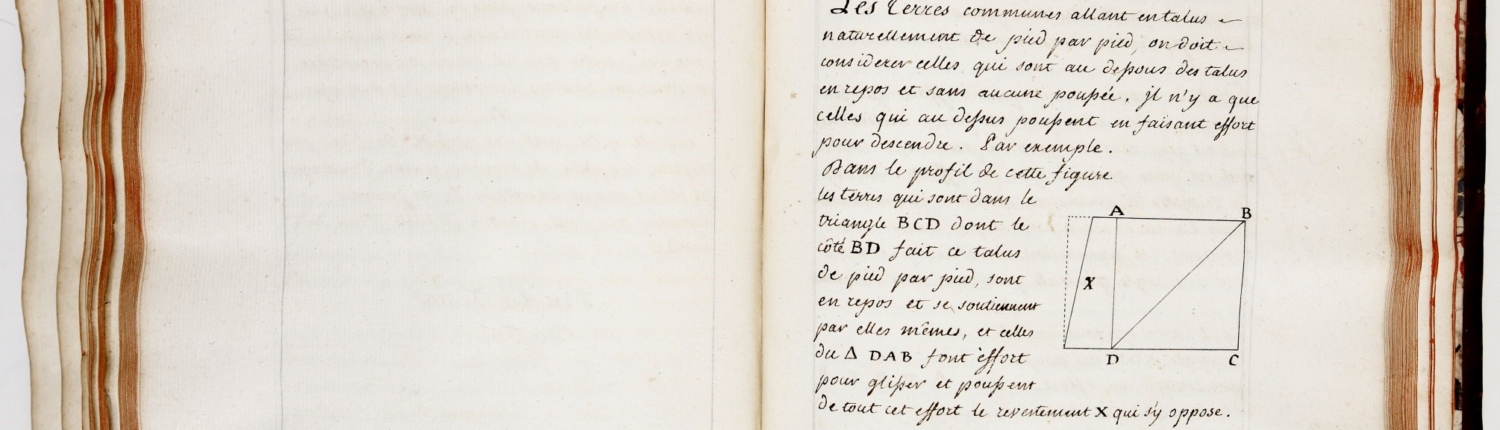 Les terres communes allant en talus
naturellement de pied par pied, on doit
considerer celles qui sont au dessous des talus
en repos et sans aucune poussée, jl n'y a que
celles qui au dessus poussent en faisant effort
pour descendre. Par exemple.
Dans le profil de cette figure
les terres qui sont dans le
triangle BCD dont le
côté BD fait ce talus
de pied par pied, sont
en repos et se soutiennent
par elles mêmes, et celles
du Δ DAB font effort
pour glisser et poussent
de tout cet effort le revestement X qui s'y oppose.
A B
X
D C